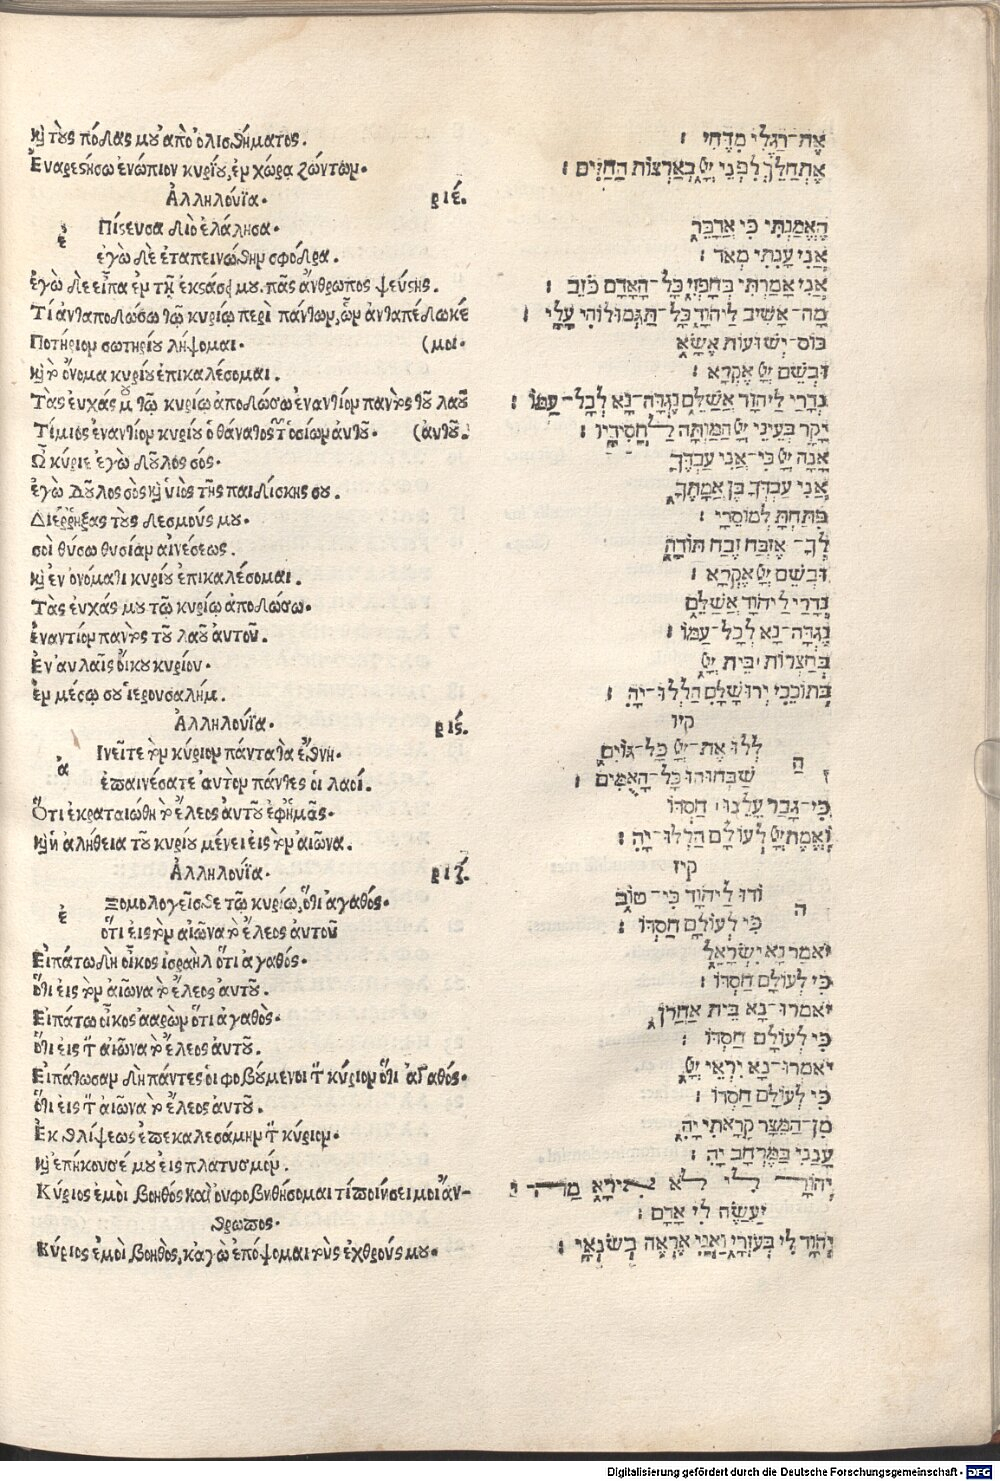 καὶ τοὺς πόδας μου ἀπὸ ὀλισθήματος.
Εναρεστήσω ἐνώπιον κυρίου, ἐν χώρα ζώντων.
Αλληλούϊα. ριέ.
ἐ Πίστευσα διὸ ἐλάλησα.
ἐγὼ δὲ ἐταπεινώθην σφόδρα.
ἐγὼ δὲ εἶπα ἐν τῇ ἐκστάσει μου. πᾶς ἄνθρωπος ψεύστης.
Τί ἀνταποδώσω τῷ κυρίῳ περὶ πάντων, ὧν ἀνταπέδωκέ
Ποτήριον σωτηρίου λήψομαι. (μοι.
καὶ τὸ ὄνομα κυρίου ἐπικαλέσομαι.
Τὰς ἐυχάς μου τῷ κυρίῳ ἀποδώσω ἐναντίον παντὸς τοῦ λαοῦ
Τίμιος ἐναντίον κυρίου ὁ θάνατος τῶν ὁσίων ἀυτοῦ. (ἀυτοῦ.
Ὦ κύριε ἐγὼ δοῦλος σός.
ἐγὼ δοῦλος σὸς καὶ υἱὸς τῆς παιδίσκης σου.
Διέρρηξας τοὺς δεσμούς μου.
σοὶ θύσω θυσίαν αἰνέσεως.
καὶ ἐν ὀνόματι κυρίου ἐπικαλέσομαι.
Τὰς ἐυχάς μου τῷ κυρίῳ ἀποδώσω.
ἐναντίον παντὸς τοῦ λαοῦ ἀυτοῦ.
Ἐν ἀυλαῖς οἴκου κυρίου.
ἐν μέσῳ σου ἱερουσαλήμ.
Ἀλληλούϊα. ρις.
ἀ Ινεῖτε τὸν κύριον πάντα τὰ ἔθνη.
ἐπαινέσατε ἀυτὸν πάντες οἱ λαοί.
Ὅτι ἐκραταιώθη τὸ ἔλεος ἀυτοῦ ἐφ' ἡμᾶς.
καὶ ἡ ἀλήθεια τοῦ κυρίου μένει εἰς τὸν αἰῶνα.
Ἀλληλούϊα. ριζ.
ἐ Ξομολογεῖσθε τῷ κυρίῳ, ὅτι ἀγαθός.
ὅτι εἰς τὸν αἰῶνα τὸ ἔλεος ἀυτοῦ
Εἰπάτω δὴ οἶκος ἰσραὴλ ὅτι ἀγαθός.
ὅτι εἰς τὸν αἰῶνα τὸ ἔλεος ἀυτοῦ.
Εἰπάτω οἶκος ἀαρὼν ὅτι ἀγαθὸς.
ὅτι εἰς τὸν αἰῶνα τὸ ἔλεος ἀυτοῦ.
Εἰπάτωσαν δὴ πάντες οἱ φοβούμενοι τὸν κύριον ὅτι ἀγαθός.
ὅτι εἰς τὸν αἰῶνα τὸ ἔλεος ἀυτοῦ.
Ἐκ θλίψεως ἐπεκαλεσάμην τὸν κύριον.
καὶ ἐπήκουσέ μου εἰς πλατυσμόν.
Κύριος ἐμοὶ βοηθός καὶ οὐ φοβηθήσομαι τί ποιήσει μοι ἄν-
θρωπος.
Κύριος ἐμοὶ βοηθὸς, κἀγὼ ἐπόψομαι τοὺς ἐχθρούς μου.
אֶת־רַגְלַי מִדֶּחִי :
אֶתְחַלֵּךְ לִפְנֵי יְיָ בְּאַרְצוֹת הַחַיִּים :
הֶאֱמַנְתִּי כִּי אֲדַבֵּר
אֲנִי עָנִתִי מְאֹד :
אֲנִי אָמַרְתִּי בְחָפְזִי כָּל־הָאָדָם כֹּזֵב :
מָה־אָשִׁיב לַיהוָה כָּל־תַּגְמוּלוֹהִי עָלָי :
כּוֹס־יְשׁוּעוֹת אֶשָּׂא
וּבְשֵׁם יְיָ אֶקְרָא :
נְדָרַי לַיהוָה אֲשַׁלֵּם נֶגְדָה־נָּא לְכָל־עַמּוֹ :
יָקָר בְּעֵינֵי יְיָ הַמָּוְתָה לַחֲסִידָיו :
אָנָה יְיָ כִּי־אֲנִי עַבְדֶּךָ
אֲנִי עַבְדְּךָ בֶּן אֲמָתֶךָ
פִּתַּחְתָּ לְמוֹסֵרָי :
לְךָ־אֶזְבַּח זֶבַח תּוֹדָה
וּבְשֵׁם יְיָ אֶקְרָא :
נְדָרַי לַיהוָה אֲשַׁלֵּם
נֶגְדָה־נָּא לְכָל־עַמּוֹ :
בְּחַצְרוֹת בֵּית יְיָ
בְּתוֹכֵכִי יְרוּשָׁלָםִ הַלְלוּ־יָהּ :
קיו
ה לְלוּ אֶת־יְיָ כָּל־גּוֹיִם
שַׁבְּחוּהוּ כָּל־הָאֻמִּים :
כִּי־גָבַר עָלֵינוּ חַסְדּוֹ
וֶאֱמֶת יְיָ לְעוֹלָם הַלְלוּ־יָהּ :
קיז
ה וֹדוּ לַיהוָה כִּי־טוֹב
כִּי לְעוֹלָם חַסְדּוֹ :
יֹאמַר נָא יִשְׂרָאֵל
כִּי לְעוֹלָם חַסְדּוֹ :
יֹאמְרוּ־נָא בֵית אַהֲרֹן
כִּי לְעוֹלָם חַסְדּוֹ :
יֹאמְרוּ־נָא יִרְאֵי יְיָ
כִּי לְעוֹלָם חַסְדּוֹ :
מִן־הַמֵּצַר קָרָאתִי יָהּ
עָנָנִי בַמֶּרְחָב יָהּ :
יְהוָה לִי לֹא אִירָא מַה־
יַעֲשֶׂה לִי אָדָם :
יְהוָה לִי בְּעֹזְרָי וַאֲנִי אֶרְאֶה בְשֹׂנְאָי :
Digitalisierung gefördert durch die Deutsche Forschungsgemeinschaft - DFG